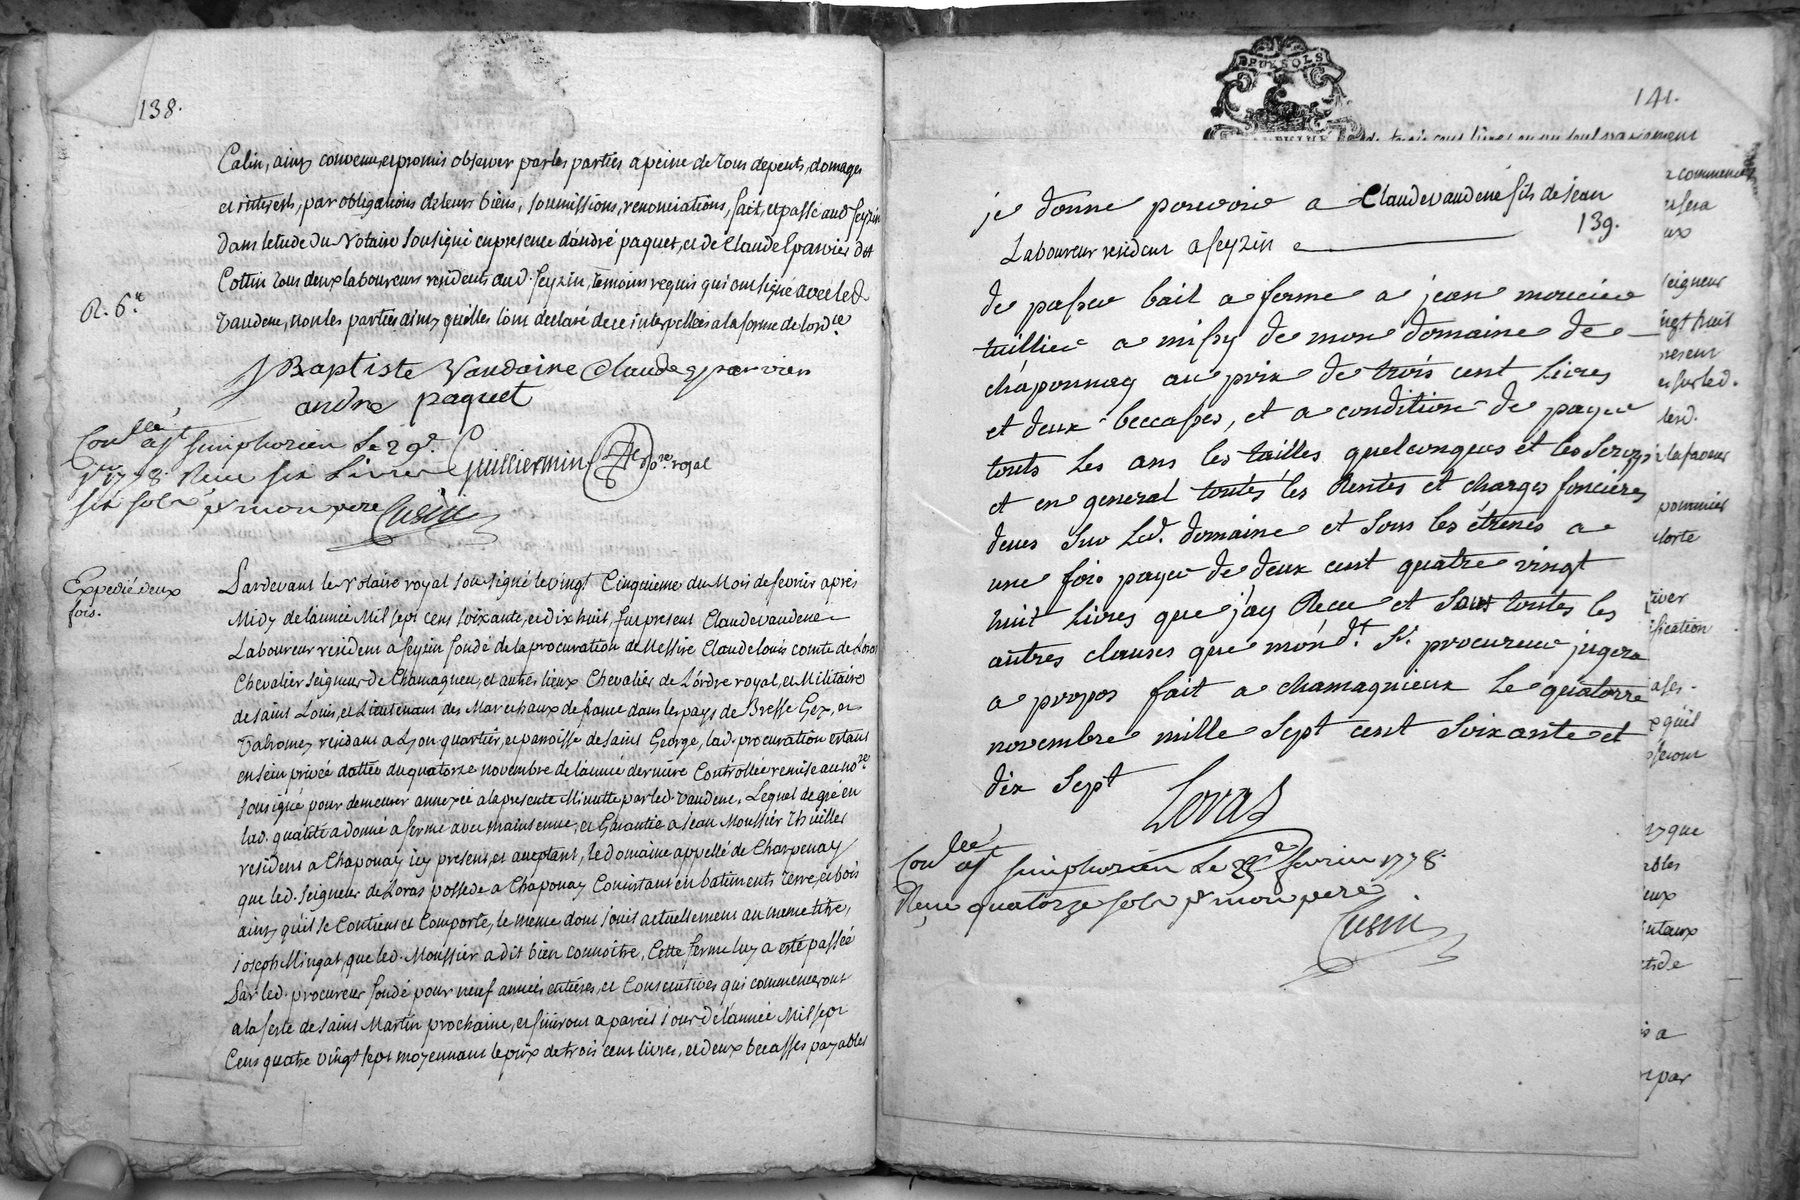 138.
Calin, ainsy convenu, et promis observer par les parties a peine de tous depents, domages
et interests, par obligations de leurs biens, soumissions, renonciations, fait, et passé aud. feyzin
dans letude du Notaire sousigné en presence d'andré paquet, et de Claude Eparvier dit
Cottin tous deux laboureurs residents aud. feyzin, temoins requis qui ont signé avec led.
Vaudene, non les parties ainsy quelles l'ont declaré de ce interpellées a la forme de lord.ce
R. 6.#
J Baptiste Vaudaine Claude eparvier
andre paquet
Con.llé a st simphorien le 29e
1778 Recu six Livres Guilliermin No.re royal
six sols pr mon pere Cusin
Expedié deux
fois.
Pardevant le Notaire royal sousigné le vingt Cinquieme du Mois de fevrier apres
Midy de l'année Mil sept cens soixante, et dix huit, fut present Claude vaudene
Laboureur resident a feyzin fondé de la procuration de Messire Claude louis comte de Loras
Chevalier Seigneur de Chamagneu, et autres lieux Chevalier de L'ordre royal, et Militaire
de saint Louis, et Lieutenant des Marechaux de france dans les pays de Bresse Gex, et
Valromey residant a Lyon quartier, et paroisse de saint George, lad. procuration estant
en sein privé dattée du quatorze novembre de l'année derniere Controllée remise au no.re
sousigné pour demeurer annexée a la presente Minutte par led. vaudene. Lequel de gré en
lad. qualité a donné a ferme avec maintenue, et Garantie a Jean Moussier Thuillier
resident a Chaponay icy present, et acceptant, le domaine appellé de Charpenay
que led. seigneur de Loras possede a Chaponay Consistant en batiments terre, et bois
ainsy qu'il se Contient et Comporte, le meme dont jouit actuellement au meme titre,
joseph Mingat, que led. Moussier a dit bien connoitre, Cette ferme luy a esté passée
Par led. procureur fondé pour neuf années entieres, et Consecutives qui commenceront
a la feste de saint Martin prochaine, et finiront a pareil jour de l'année Mil sept
Cens quatre vingt sept moyennant le prix de trois cent livres, et deux becasses payables
BRUXSOLS
DAUPHINE
141.
de trois cens livres en un seul payement
je donne pouvoir a Claude vaudene fils de jean
139.
Laboureur resident a feyzin
de passer bail a ferme a jean moucier
tuillier a missy de mon domaine de
chaponnay au prix de trois cent Livres
et deux beccasses, et a condition de payer
touts Les ans les tailles quelconques et les
et en general toutes les Rentes et charges foncieres
deues sur Led. domaine et sous les étrenes a
une fois payer de deux cent quatre vingt
huit Livres que j'ay Recu et sous toutes les
autres clauses que mon d.t Sr. procureur jugera
a propos fait a chamagnieux Le quatorze
novembre mille sept cent soixante et
dix sept
Loras
Con.llé a st simphorien Le fevrier 1778.
Reçu quatorze sols pr mon pere
Cusin
seigneur
vingt huit
present
la faveur
pommier
sorte
ification
qu'il
seront
y que
ables
eux
par